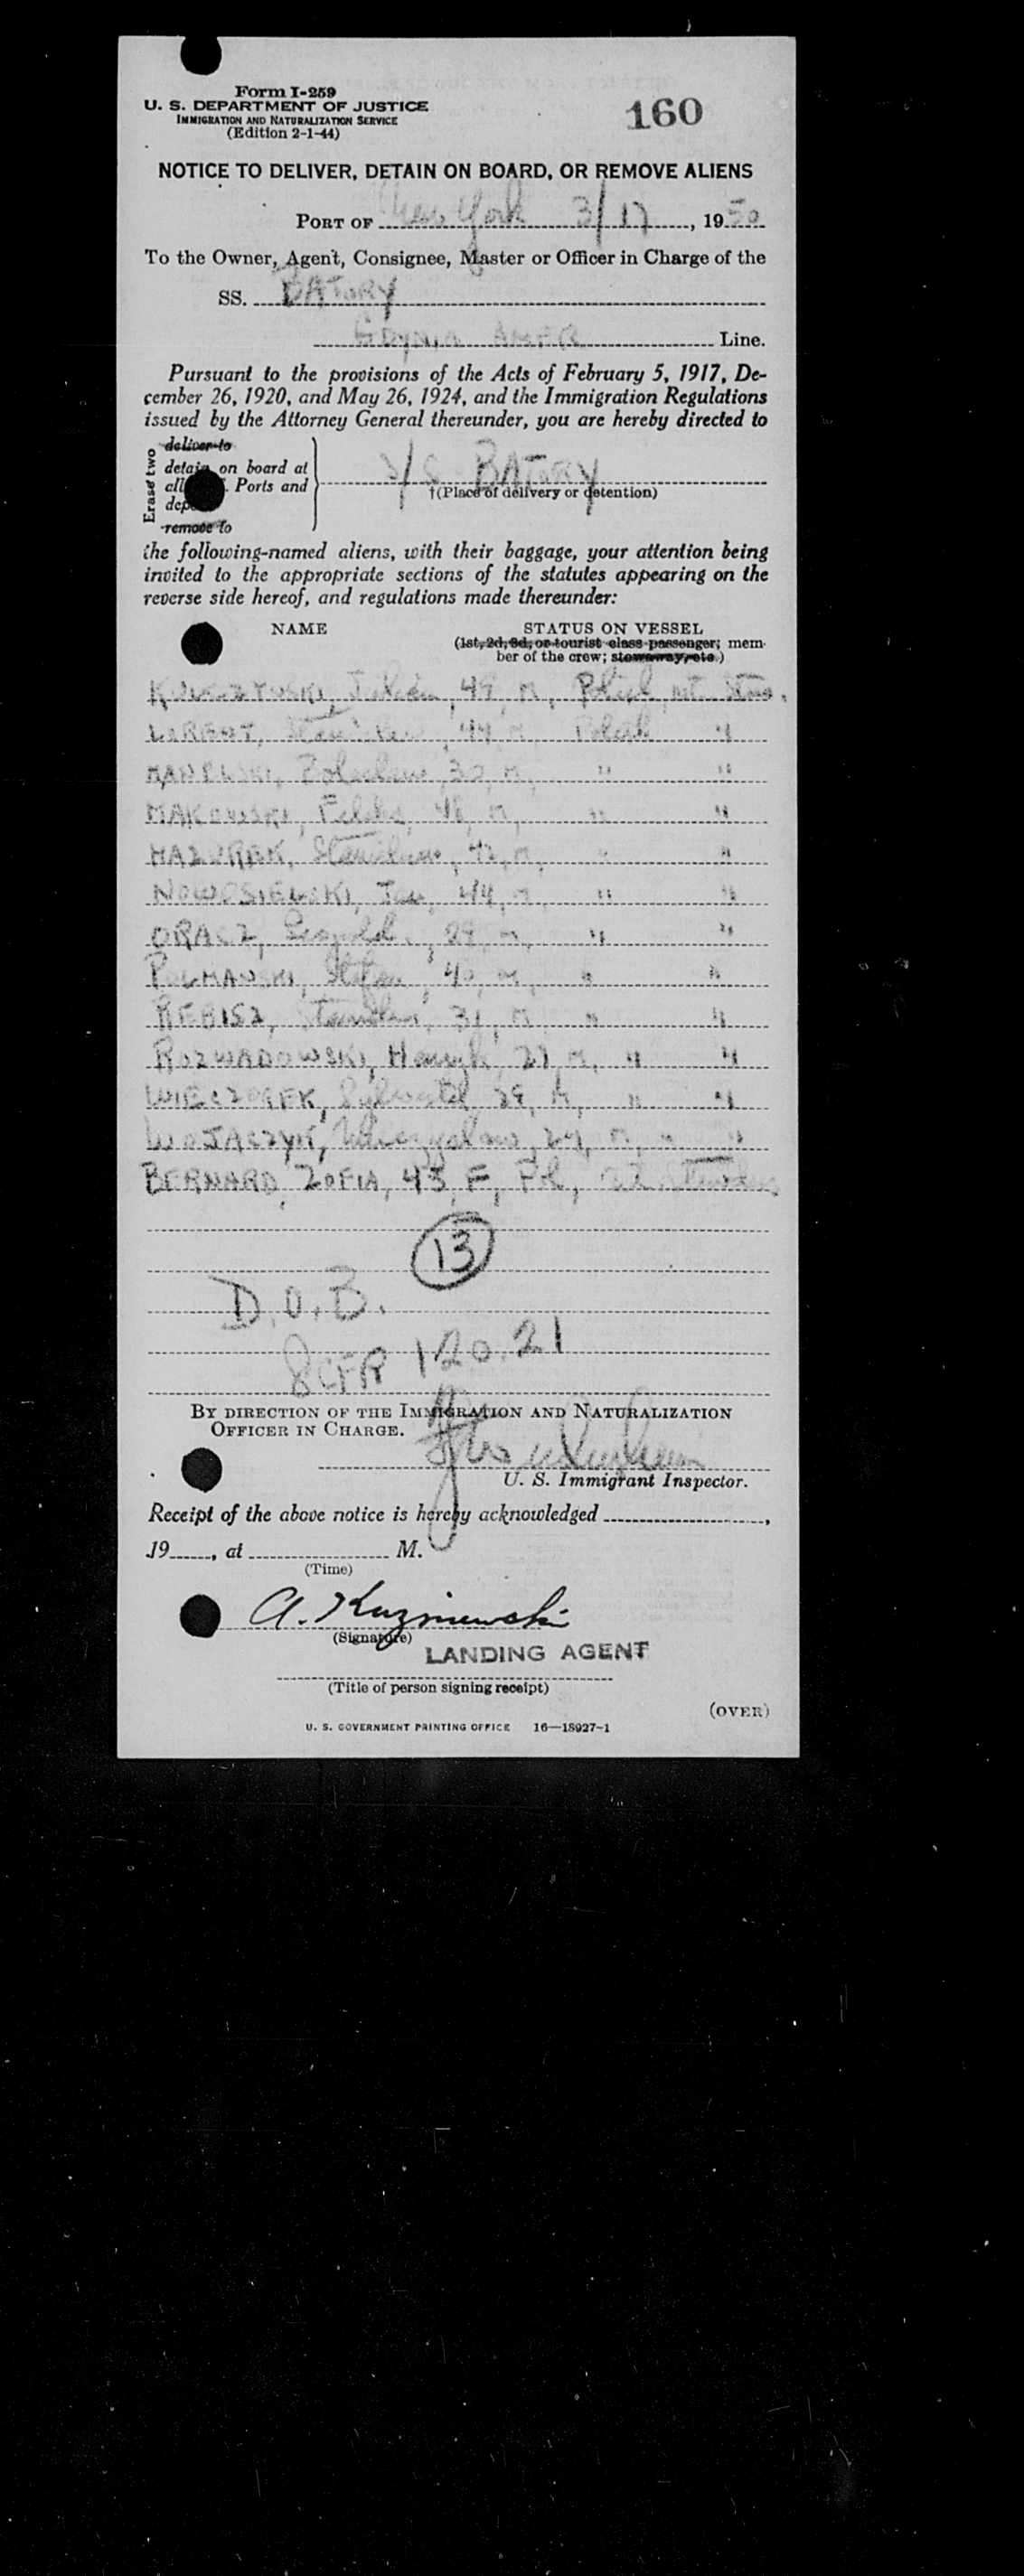 Form I-259
U. S. DEPARTMENT OF JUSTICE
IMMIGRATION AND NATURALIZATION SERVICE
(Edition 2-1-44)
160
NOTICE TO DELIVER, DETAIN ON BOARD, OR REMOVE ALIENS
PORT OF New York 3/17, 1950
To the Owner, Agent, Consignee, Master or Officer in Charge of the
SS. BATORY
GDYNIA AMER Line.
Pursuant to the provisions of the Acts of February 5, 1917, De-
cember 26, 1920, and May 26, 1924, and the Immigration Regulations
issued by the Attorney General thereunder, you are hereby directed to
Erase two
deliver to
detain on board at
all Ports and
remove to
S/S BATORY
†(Place of delivery or detention)
the following-named aliens, with their baggage, your attention being
invited to the appropriate sections of the statutes appearing on the
reverse side hereof, and regulations made thereunder:
NAME STATUS ON VESSEL
(1st, 2d, 3d, or tourist class passenger; mem-
ber of the crew; stowaway, etc.)
49, M, Polish
44, M, Polish "
30, M, " "
MAKOWSKI, 48, M, " "
MAZUREK, Stanislaw, 42, M, " "
NOWOSIELSKI, Jan, 44, M, " "
ORACZ, Leopold, 29, M, " "
Stefan, 40, M, " "
REBISZ, Stanislaw, 31, M, " "
ROZWADOWSKI, Henryk, 27, M, " "
WIECZOREK, Sylwester, 29, M, " "
WOJTACZYK, 24, M, " "
BERNARD, ZOFIA, 43, F, Pol,
13
D.O.B.
8 CFR 120.21
BY DIRECTION OF THE IMMIGRATION AND NATURALIZATION
OFFICER IN CHARGE.
U. S. Immigrant Inspector.
Receipt of the above notice is hereby acknowledged ,
19 , at M.
(Time)
A. Kuzniewski
(Signature)
LANDING AGENT
(Title of person signing receipt)
(OVER)
U. S. GOVERNMENT PRINTING OFFICE 16—18927-1